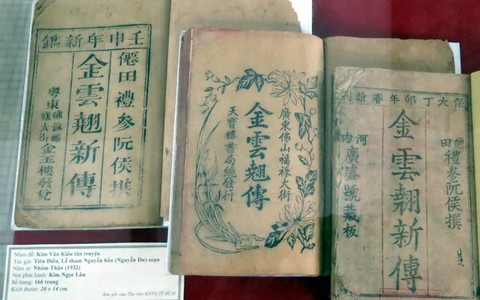 壬申年新鐫
僊田禮參阮侯撰
金雲翹新傳
粵東佛鎮福祿大街金玉樓發兌
廣東佛山福祿大街
金雲翹傳
天寶樓書局總發行
保大丁卯年春新刊
僊田禮參阮侯撰
金雲翹新傳
河內廣盛號藏板
Nhan đề: Kim Vân Kiều tân truyện
Tác giả: Tiên Điền, Lễ tham Nguyễn hầu (Nguyễn Du) soạn
Năm in: Nhâm Thân (1932)
Nơi phát hành: Kim Ngọc Lâu
Số trang: 166 trang
Kích thước: 20 x 14 cm.